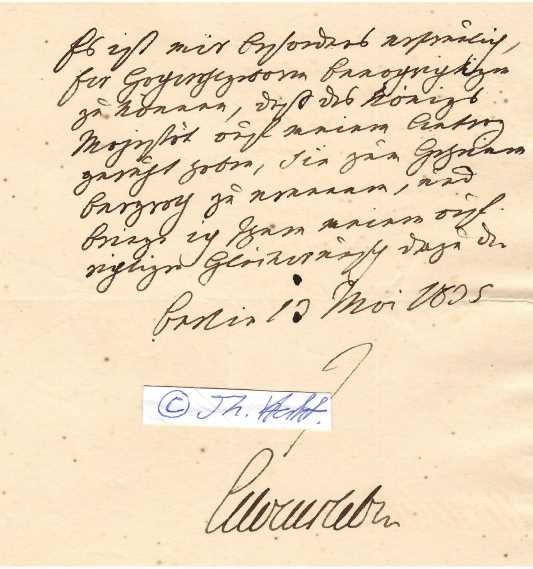 Es ist mir besonders erfreulich,
benachrichtigen
zu können, daß des Königs
Majestät auf meinen Antrag
geruht haben, Sie zum Geheimen
Bergrath zu ernennen, und
bringe ich Ihnen meinen auf-
richtigen Glückwunsch dazu dar
Berlin Mai 1835
© Th.
Alvensleben